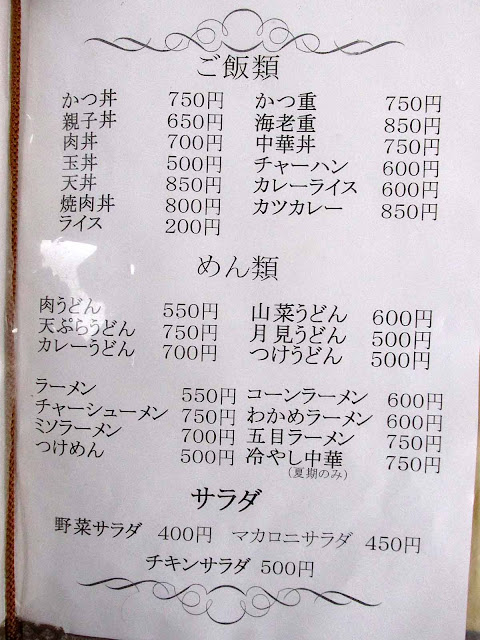 ご飯類
かつ丼 750円 かつ重 750円
親子丼 650円 海老重 850円
肉丼 700円 中華丼 750円
玉丼 500円 チャーハン 600円
天丼 850円 カレーライス 600円
焼肉丼 800円 カツカレー 850円
ライス 200円
めん類
肉うどん 550円 山菜うどん 600円
天ぷらうどん 750円 月見うどん 500円
カレーうどん 700円 つけうどん 500円
ラーメン 550円 コーンラーメン 600円
チャーシューメン 750円 わかめラーメン 600円
ミソラーメン 700円 五目ラーメン 750円
つけめん 500円 冷やし中華 750円
(夏期のみ)
サラダ
野菜サラダ 400円 マカロニサラダ 450円
チキンサラダ 500円